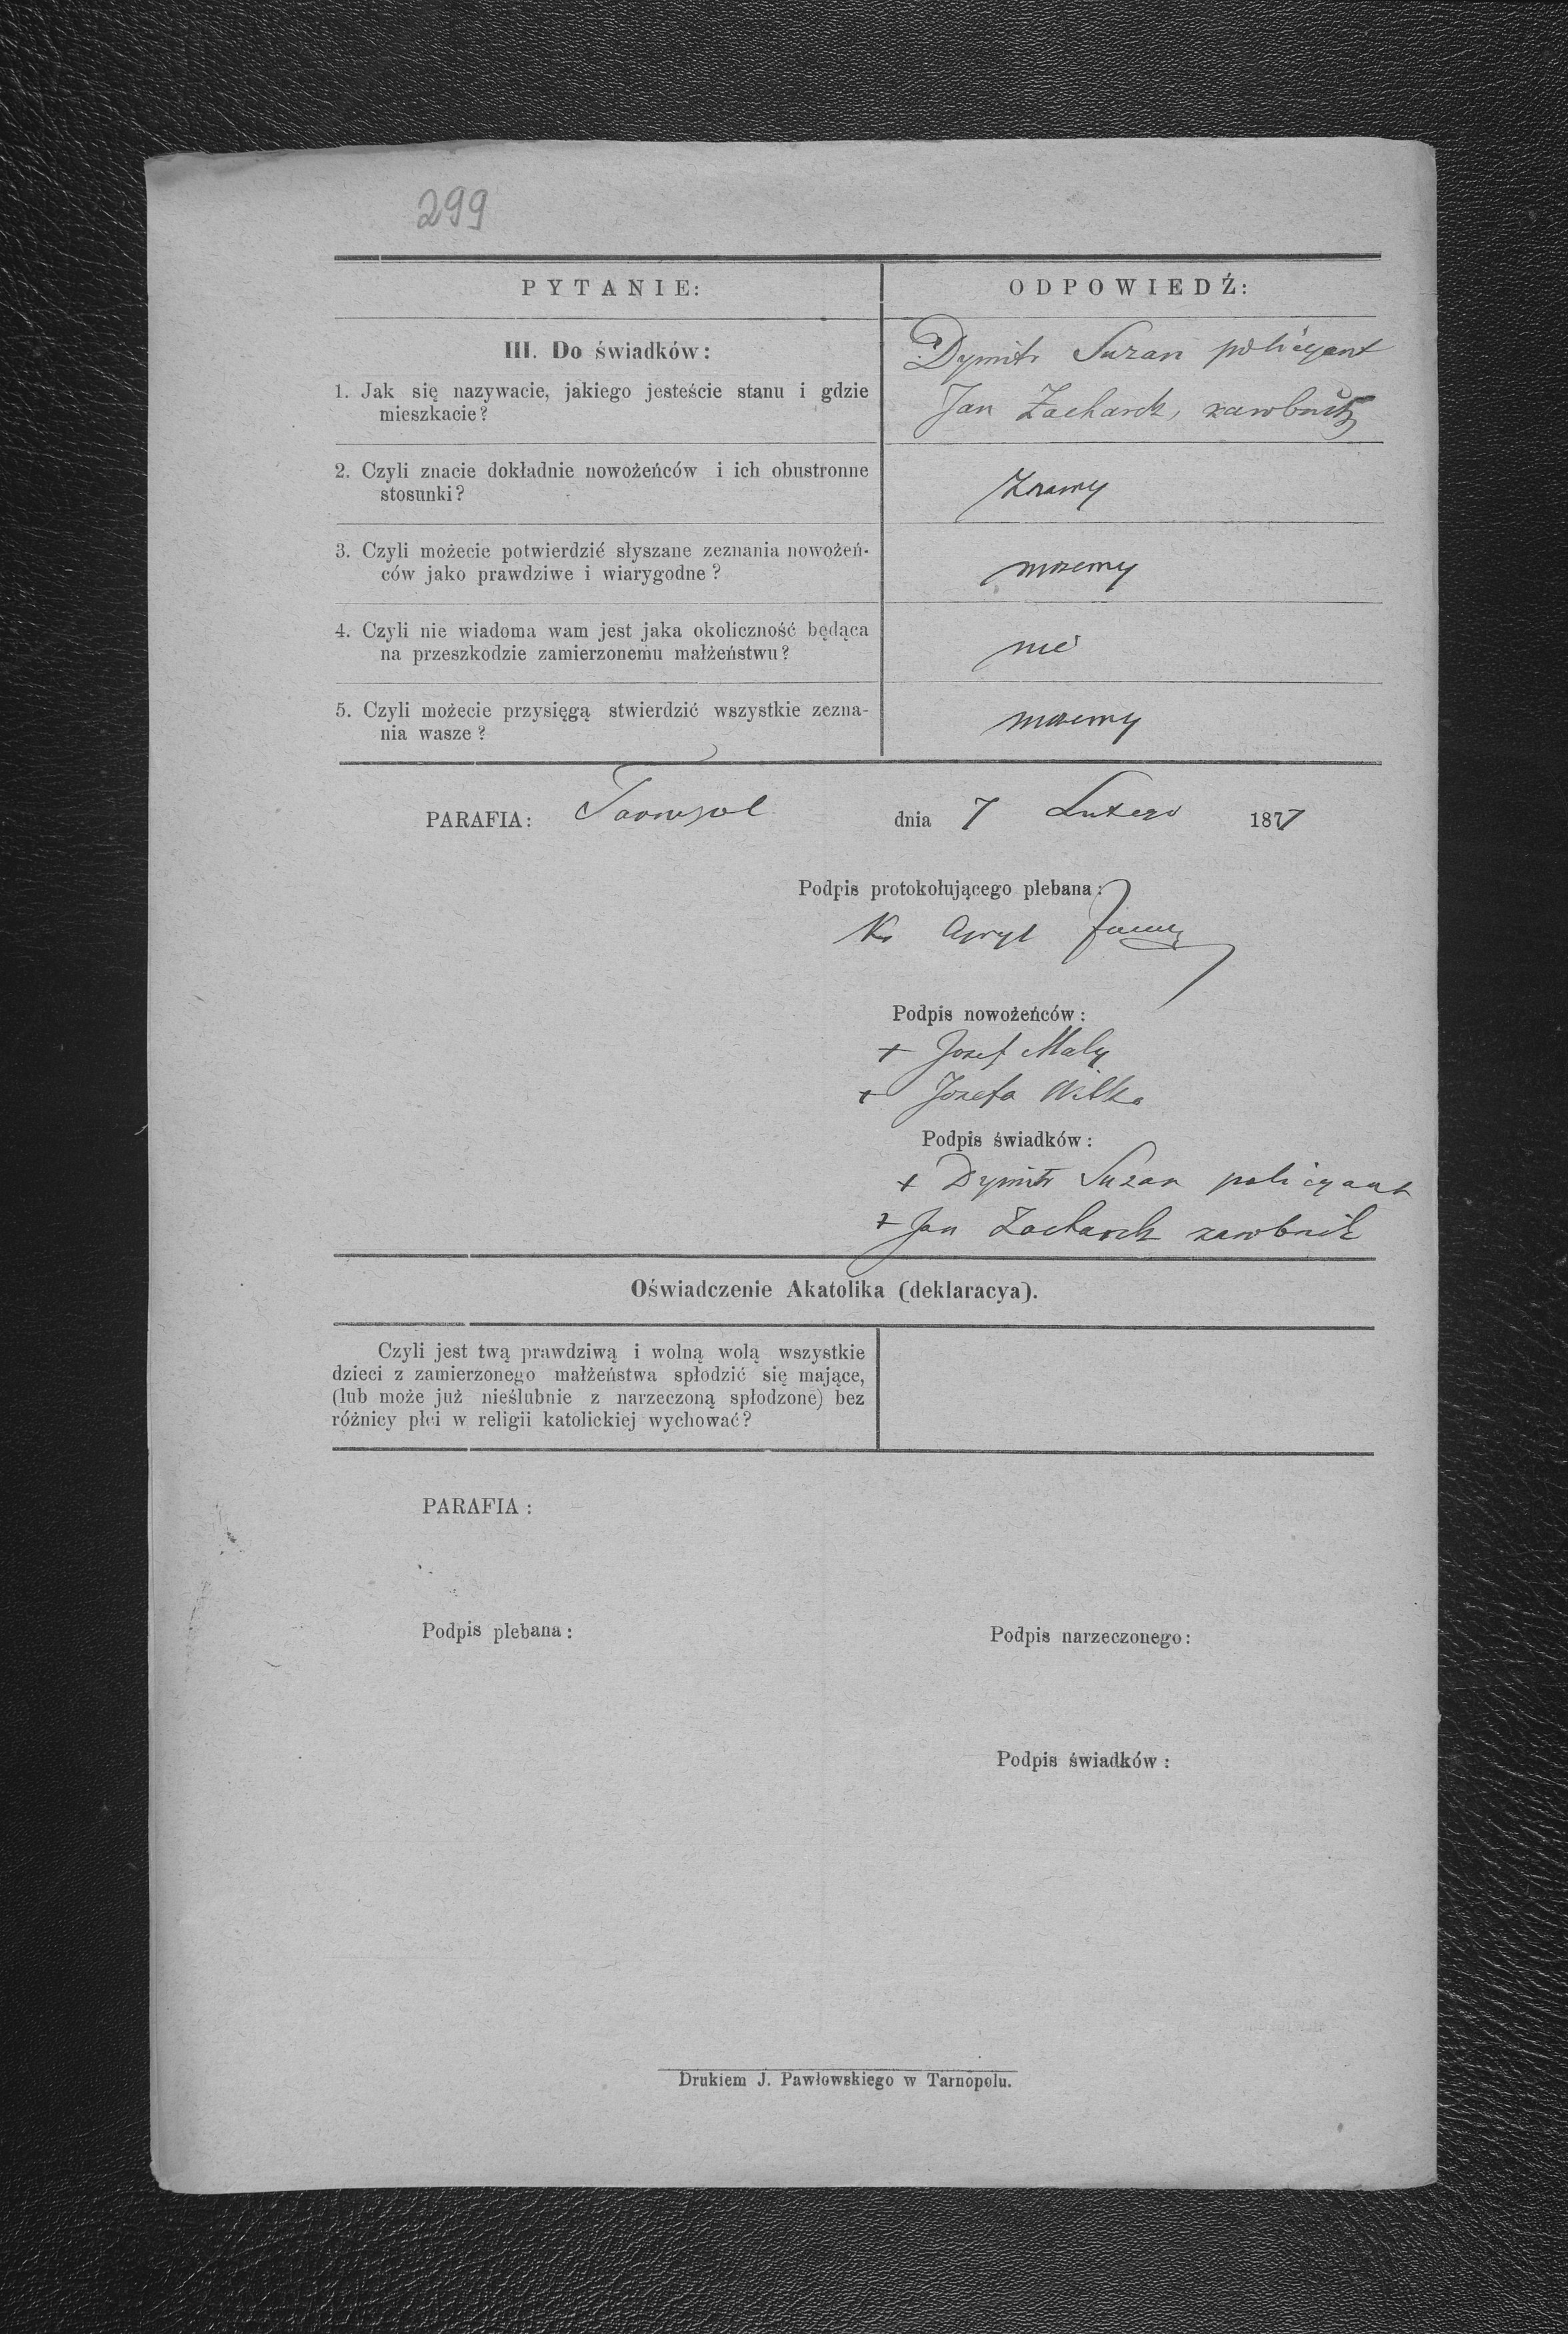 299
PYTANIE:
ODPOWIEDŹ:
III. Do świadków:
1. Jak się nazywacie, jakiego jesteście stanu i gdzie
mieszkacie?
Dymitr Suzan policyant
Jan Zacharek, zarobnik
2. Czyli znacie dokładnie nowożeńców i ich obustronne
stosunki?
Znamy
3. Czyli możecie potwierdzić słyszane zeznania nowożeń-
ców jako prawdziwe i wiarygodne?
mozemy
4. Czyli nie wiadoma wam jest jaka okoliczność będąca
na przeszkodzie zamierzonemu małżeństwu?
nie
5. Czyli możecie przysięgą stwierdzić wszystkie zezna-
nia wasze?
mozemy
PARAFIA: Tarnopol dnia 7 Lutego 1877
Podpis protokołującego plebana:
Ks
Podpis nowożeńców:
+ Jozef Maly
+ Jozefa Wilka
Podpis świadków:
+ Dymitr Suzan policyant
+ Jan Zacharek zarobnik
Oświadczenie Akatolika (deklaracya).
Czyli jest twą prawdziwą i wolną wolą wszystkie
dzieci z zamierzonego małżeństwa spłodzić się mające,
(lub może już nieślubnie z narzeczoną spłodzone) bez
różnicy płci w religii katolickiej wychować?
PARAFIA:
Podpis plebana:
Podpis narzeczonego:
Podpis świadków:
Drukiem J. Pawłowskiego w Tarnopolu.